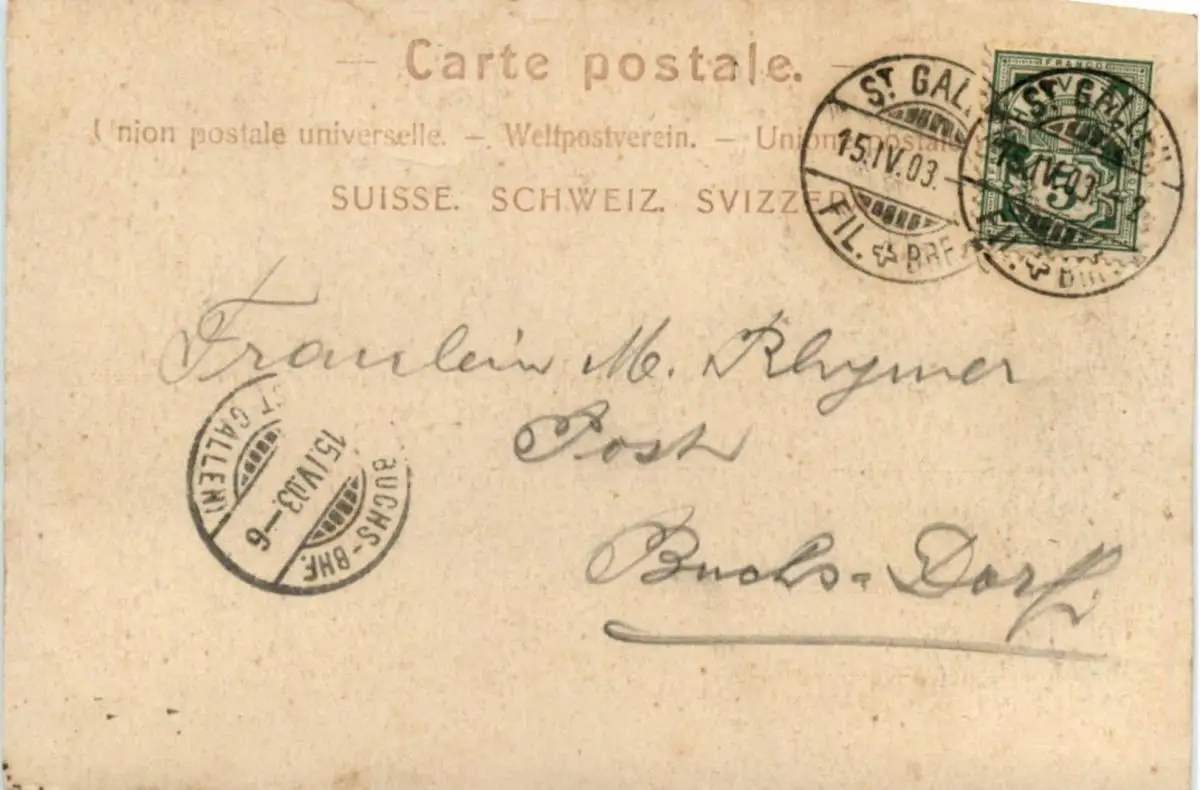 Carte postale.
Union postale universelle. – Weltpostverein. – Unione postale
SUISSE. SCHWEIZ. SVIZZER
ST. GALLEN
15.IV.03.
FIL. BRF.
FRANCO
5
ST. GALLEN
15.IV.03.–2
FIL.
Fräulein M. Rhyner
Post
Buchs-Dorf
(ST GALLEN)
15.IV.03.–6
BUCHS-BHF.